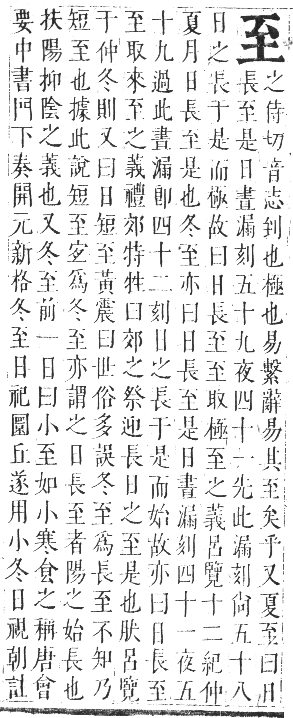 至
之侍切音志到也極也易繫辭易其至矣乎又夏至曰日
長至是日晝漏刻五十九夜四十一先此漏刻尙五十八
日之長于是而極故曰日長至至取極至之義呂覽十二紀仲
夏月日長至是也冬至亦曰日長至是日晝漏刻四十一夜五
十九過此晝漏卽四十二刻日之長于是而始故亦曰日長至
至取來至之義禮郊特牲曰郊之祭迎長日之至是也肰呂覽
于仲冬則又曰日短至黃震曰世俗多誤冬至爲長至不知乃
短至也據此說短至宐爲冬至亦謂之日長至者陽之始長也
扶陽抑陰之義也又冬至前一日曰小至如小寒食之稱唐會
要中書門下奏開元新格冬至日祀圜丘遂用小冬日視朝註